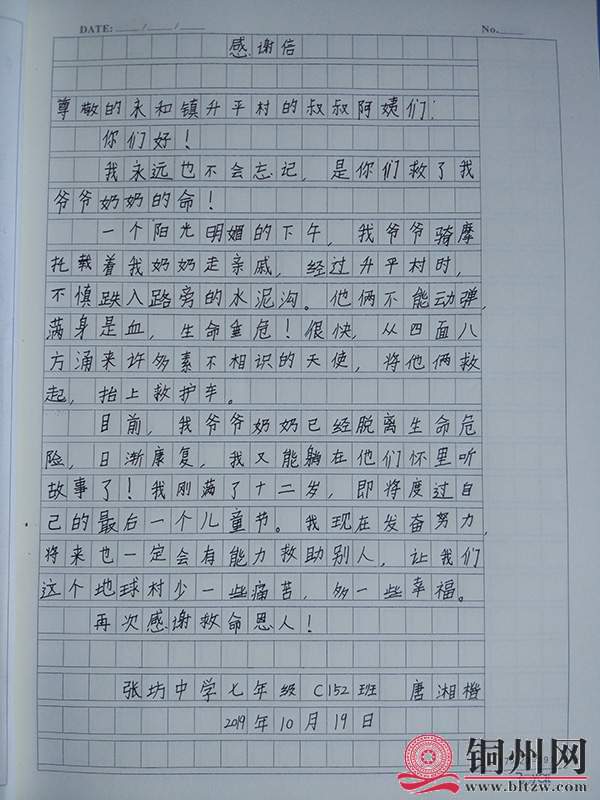 DATE: / /
No.
感谢信
尊敬的永和镇升平村的叔叔阿姨们:
你们好!
我永远也不会忘记,是你们救了我
爷爷奶奶的命!
一个阳光明媚的下午,我爷爷骑摩
托载着我奶奶走亲戚,经过升平村时,
不慎跌入路旁的水泥沟。他俩不能动弹,
满身是血,生命垂危!很快,从四面八
方涌来许多素不相识的天使,将他俩救
起,抬上救护车。
目前,我爷爷奶奶已经脱离生命危
险,日渐康复,我又能躺在他们怀里听
故事了!我刚满了十二岁,即将度过自
己的最后一个儿童节。我现在发奋努力,
将来也一定会有能力救助别人,让我们
这个地球村少一些痛苦,多一些幸福。
再次感谢救命恩人!
张坊中学七年级C152班 唐湘橙
2019年10月19日
铜州网
www.bltzw.com